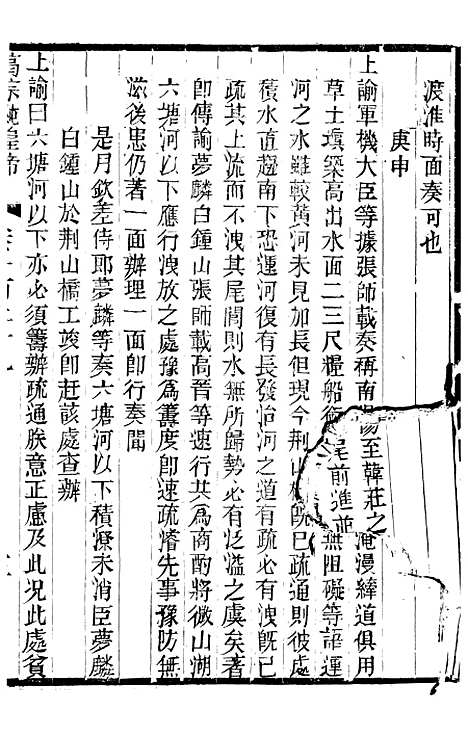 渡淮時面奏可也
庚申
上諭軍機大臣等據張師載奏稱南陽至韓莊之淹漫縴道俱用
草土塡築高出水面二三尺糧船銜尾前進並無阻礙等語運
河之水雖較黃河未見加長但現今荆山橋旣已疏通則此處
積水直趨南下恐運河復有長發治河之道有疏必有洩旣已
疏其上流而不洩其尾閭則水無所歸勢必有泛溢之虞矣著
卽傳諭夢麟白鍾山張師載高晉等速行共爲商酌將微山湖
六塘河以下應行洩放之處豫爲籌度卽速疏濬先事豫防無
滋後患仍著一面辦理一面卽行奏聞
是月欽差侍郎夢麟等奏六塘河以下積潦未消臣夢麟
白鍾山於荆山橋工竣卽赶該處查辦
上諭曰六塘河以下亦必須籌辦疏通朕意正慮及此况此處貧
高宗純皇帝
6